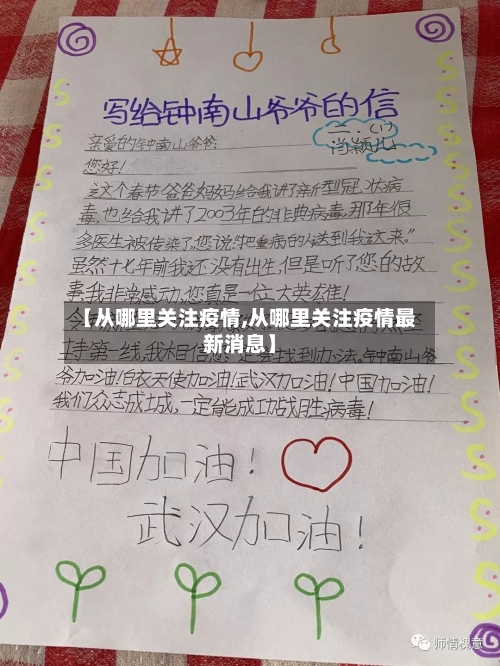 写给钟南山爷爷的信
二.(1)
肖颖儿
亲爱的钟南山爷爷:
您好!
这个春节爸爸妈妈给我讲了新型冠状病
毒,也给我讲了2003年的非典病毒,那年很
多医生被传染了,您说:“把重病的人送到我这来。”
虽然十七年前我还没有出生,但是听了您的故
事,我非常感动,您真是一位大英雄!
【从哪里关注疫情,从哪里关注疫情最
新消息】
第一线,我相信您 找到办法。钟南山爷
爷加油!白衣天使加油!武汉加油!中国加油!
我们众志成城,一定能成功战胜病毒!
中国加油!
武汉加油!
师情槐意